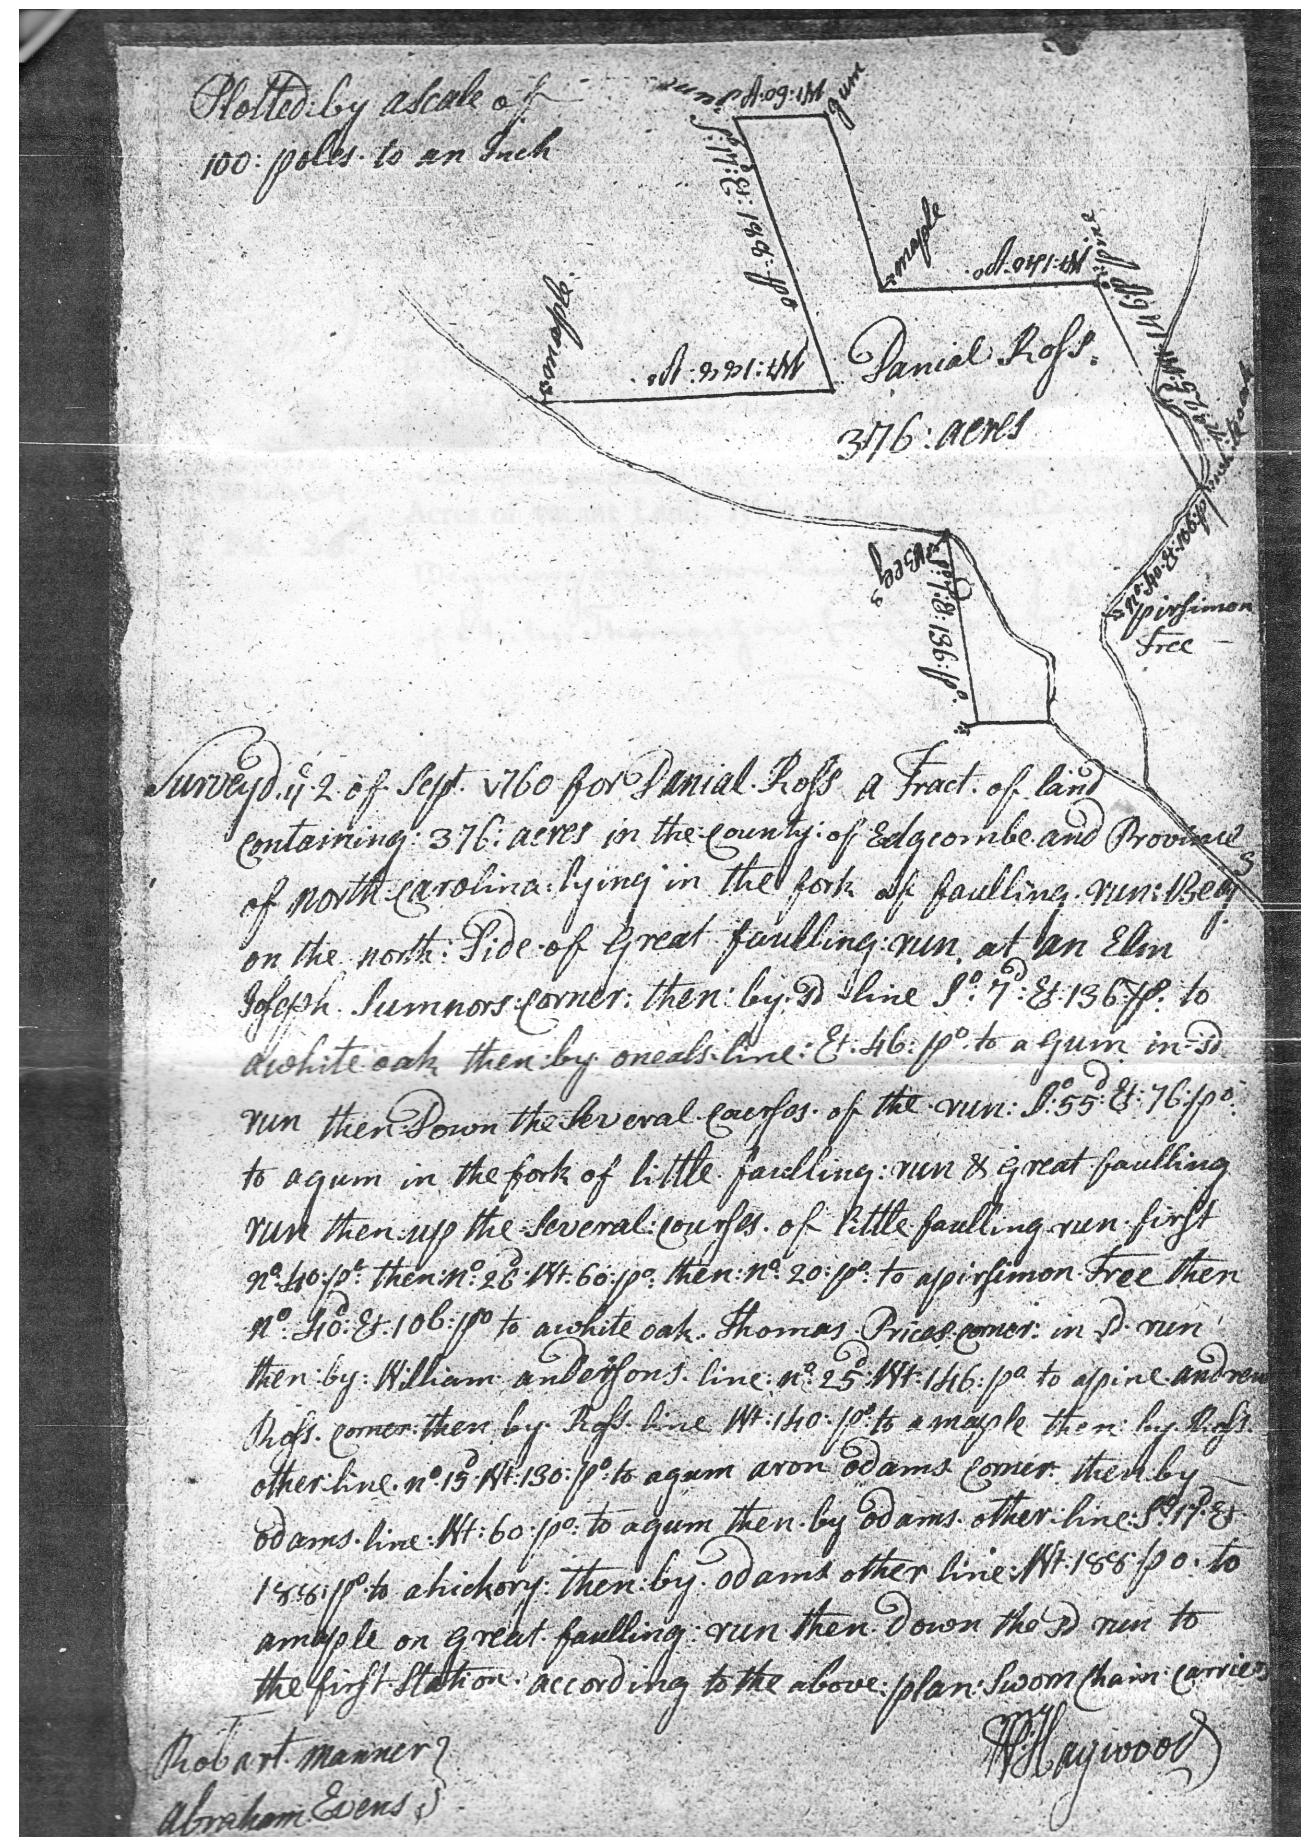 Plotted: by a scale of
100: poles to an Inch
pine
Wt: 60: po
gum
So: 17: E: 188: po
maple
Wt: 140: po.
pine
maple
Wt: 188: po
Danial Ross.
376: acres
white oak
no: 40: E: 106: po
Beg
So: 7: E: 136: po
pirsimon
Tree
Survey'd ye 2 of Sept. 1760 for Danial Ross a Tract of land
containing: 376: acres in the county: of Edgcombe and Province
of north Carolina: lying in the fork of faulling run: Beg
on the north: Side of Great faulling: run, at an Elm
Joseph Sumnors corner: then: by sd line So: 7d: Et: 136: po: to
a white oak then: by oneals line: Et: 46: po: to a gum in sd
run then Down the Several courses of the run: So: 55d: Et: 76: po:
to a gum in the fork of little faulling: run & great faulling
run then up the several: courses of little faulling run first
no: 40: po: then: no: 26d: Wt: 60: po: then: no: 20: po: to a pirsimon Tree then
no: 40d: Et: 106: po to a white oak Thomas Prices corner: in sd run
then: by: William andersons line: no: 25d: Wt: 146: po to a pine andrew
Ross. corner: then by Ross line Wt: 140: po: to a maple then: by Ross.
other: line no: 15d Wt: 130: po: to a gum aron odams corner: then by
odams line: Wt: 60: po: to a gum then by odams other: line: So: 17d: Et
188: po to a hickory: then: by odams other line: Wt: 188: po: to
a maple on great faulling: run then Down the sd run to
the first Station according to the above: plan: Sworn Chain carriers
Robart manner
Wm Haywood
Abraham Evens